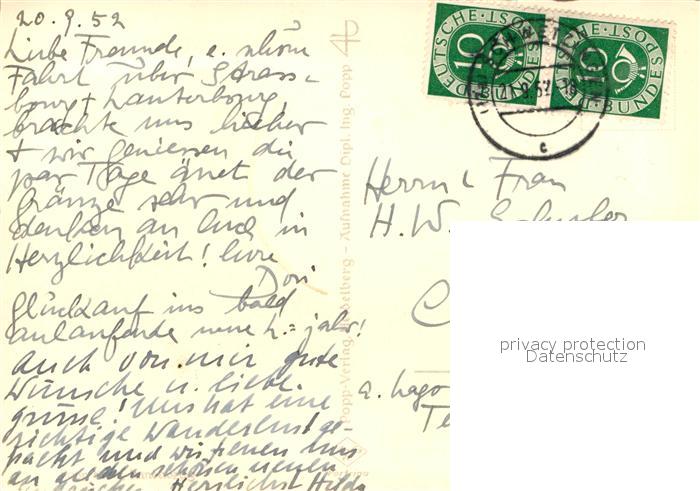 20.9.52
Liebe Freunde, e. schöne
Fahrt über Strass-
bourg + Lauterbourg,
brachte uns hierher
+ wir geniessen die
paar Tage änet der
Gränze sehr und
denken an Euch in
Herzlichkeit! Eure
Dori
Glückauf ins bald
anlaufende neue L.=jahr!
Auch von mir gute
Wünsche u. liebe
Grüsse! Uns hat eine
richtige Wanderlust ge-
packt und wir freuen uns
an all den schönen neuen
Herzlichst Hilda
Popp-Verlag, Heidelberg - Aufnahme Dipl. Ing. Popp
DEUTSCHE · POST
10
BUNDESPOST
10
SCHWETZINGEN
21.9.52
c
Herrn & Frau
H. W.
a. Lago
Te
privacy protection
Datenschutz